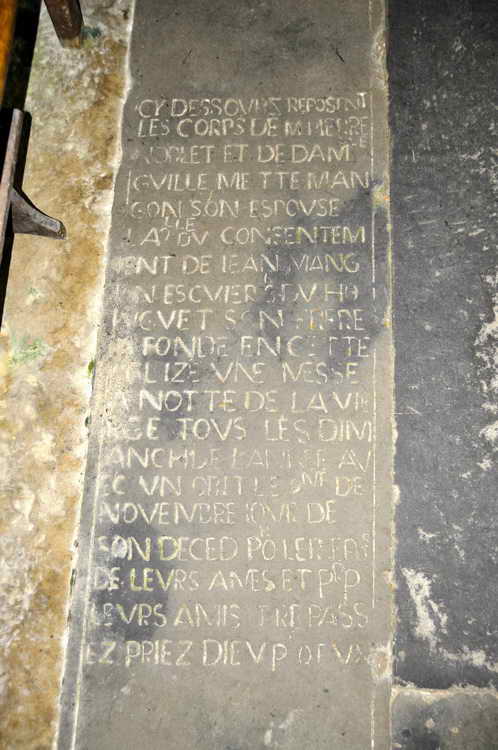 CY DESSOVRZ REPOSENT
LES CORPS DE M
NOBLET ET DE DAME
GVILLEMETTE MAN
GON SON ESPOVSE
LAQ^LLE DV CONSENTEM
ENT DE IEAN MANG
ON ESCVIER S DV
SON FRERE
FONDE EN CETTE
VNE MESSE
A NOTTE DE LA VI
RGE TOVS LES DIM
ANCH DE L'ANNEE AV
EC VN LE DE
NOVEMBRE IOVR DE
SON DECED
DE LEVRS AMES ET P^R
LEVRS AMIS TREPASS
EZ PRIEZ DIEV P^R EVX